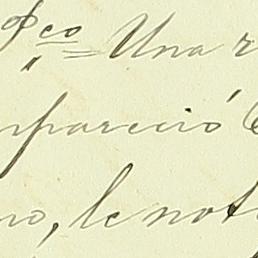 pco = Una r
mpareció
no, le not